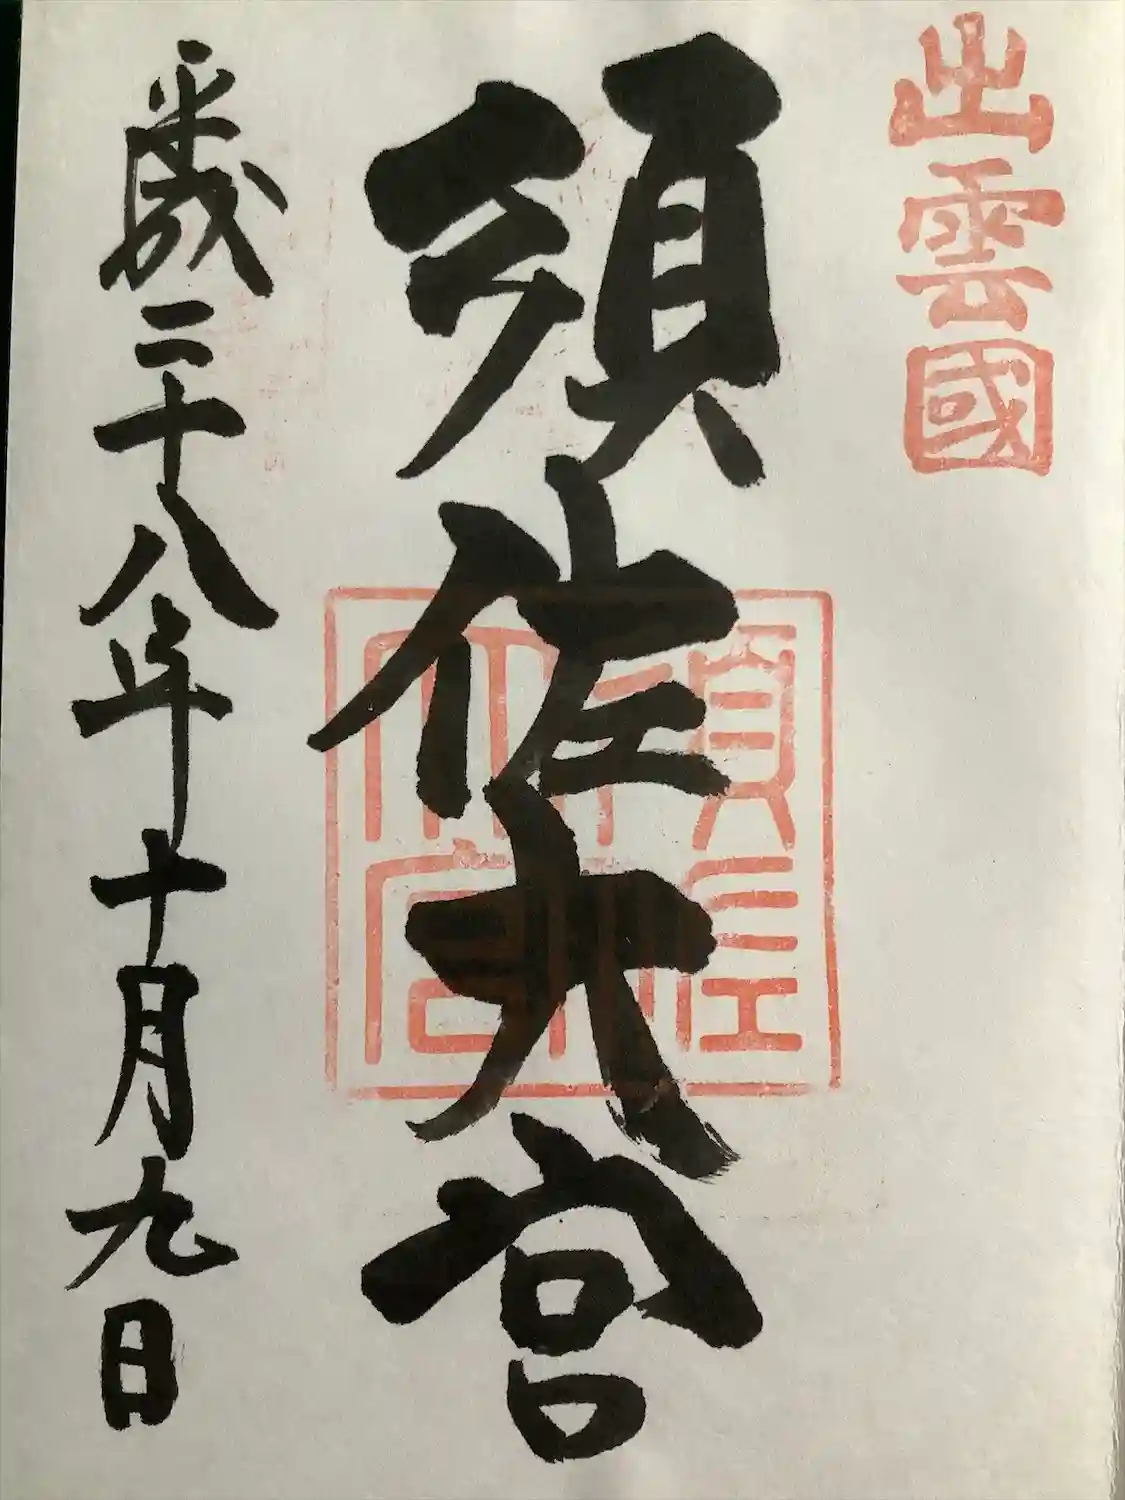 出雲國
須佐大宮
平成二十八年十月九日